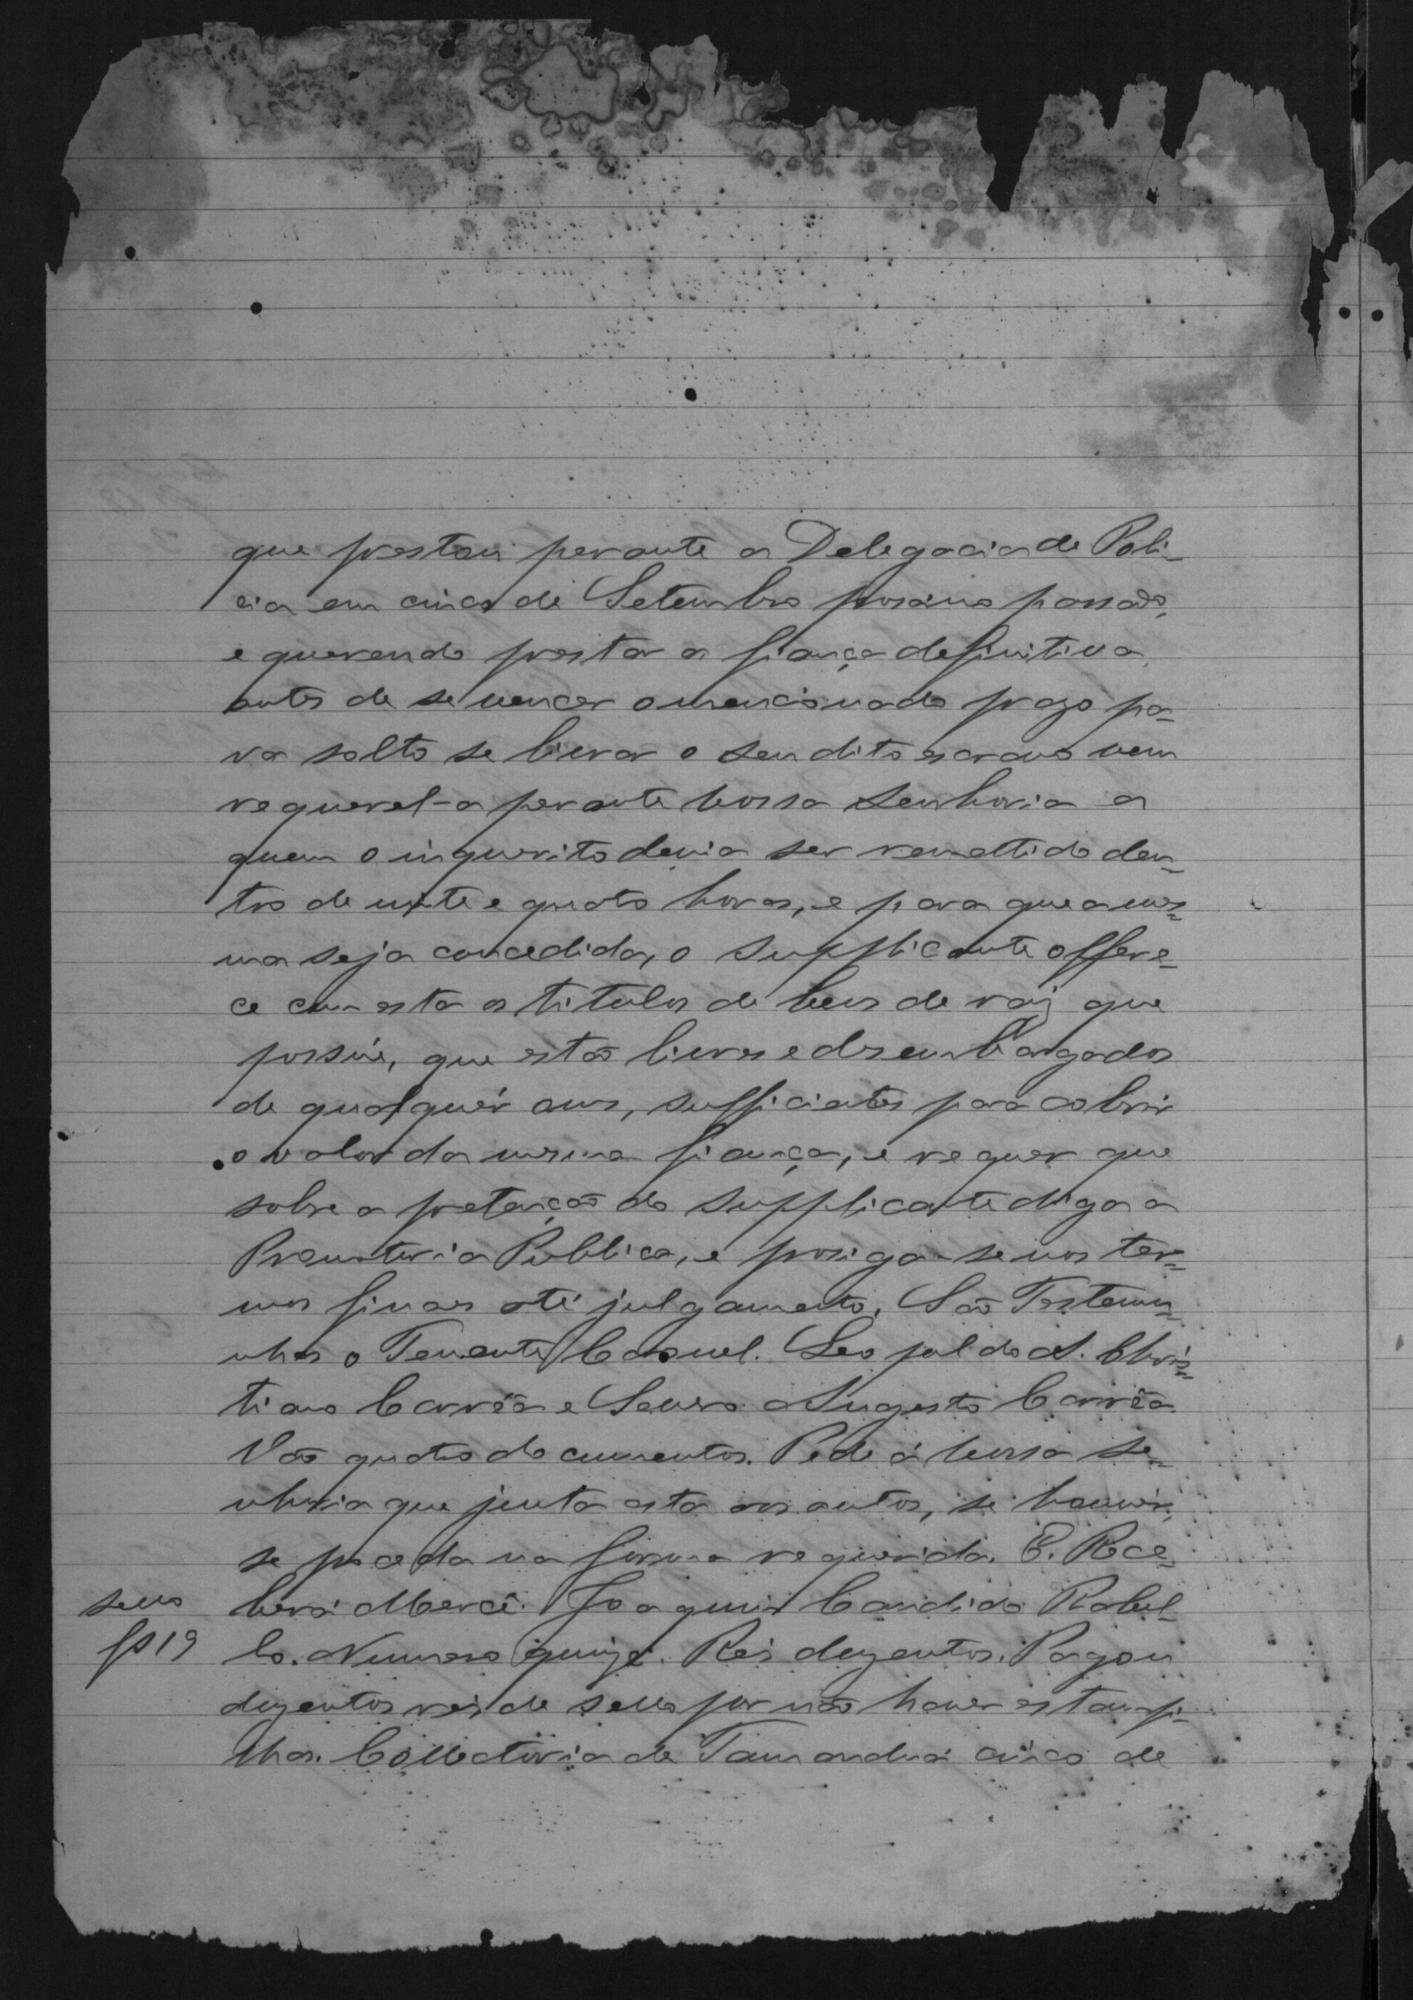 que prestou perante a Delegacia de Poli-
cia em cinco de Setembro proximo passado,
e querendo prestar a fiança definitiva,
antes de se vencer o mencionado prazo pa-
ra solto se livrar o seu dito escravo vem
requerel-a perante Vossa Senhoria a
quem o inquerito devia ser remettido den-
tro de vinte e quatro horas, e para que a mes-
ma seja concedida, o supplicante offere-
ce com esta os titulos de bens de raiz que
possúe, que estão livres e desembargados
de qualquér onus, sufficientes para cobrir
o valor da mesma fiança, e requer que
sobre a pretenção do supplicante diga a
Promotoria Publica, e prosiga-se nos ter-
mos finaes até julgamento. São Testemu-
nhas o Tenente Coronel Leopoldo A. Chris-
tiano Corrêa e Severo Augusto Corrêa
Vão quatro documentos. Pede á Vossa Se-
nhoria que junta esta aos autos, se houver,
se proceda na forma requerida. E. Rece-
berá Mercê. Joaquim Candido Rabel-
lo. Numero quinze. Reis duzentos. Pagou
duzentos reis de sello por não haver estampi-
lhas. Collectoria de Tamanduá cinco de
sello
fs 19